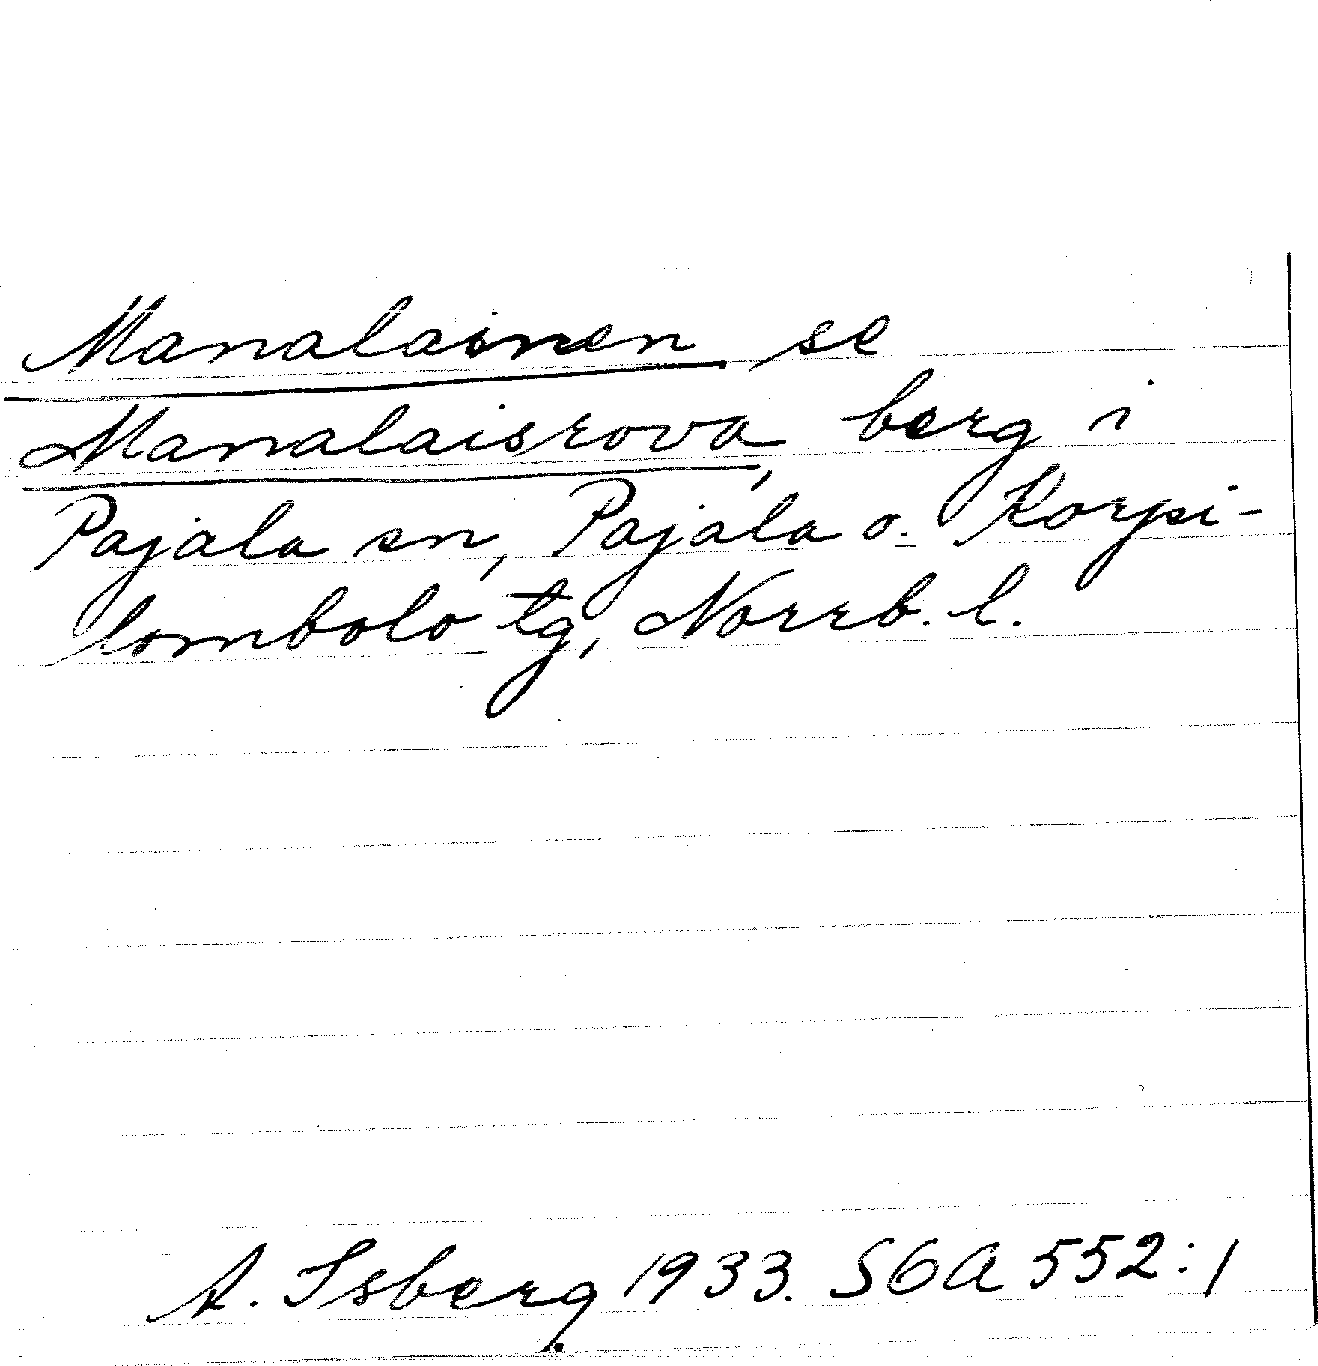 Manalainen se
Manalaisrova, berg i
Pajala sn, Pajala o. Korpi-
lombolo tg, Norrb. l.
A. Isberg 1933. SOA 552:1